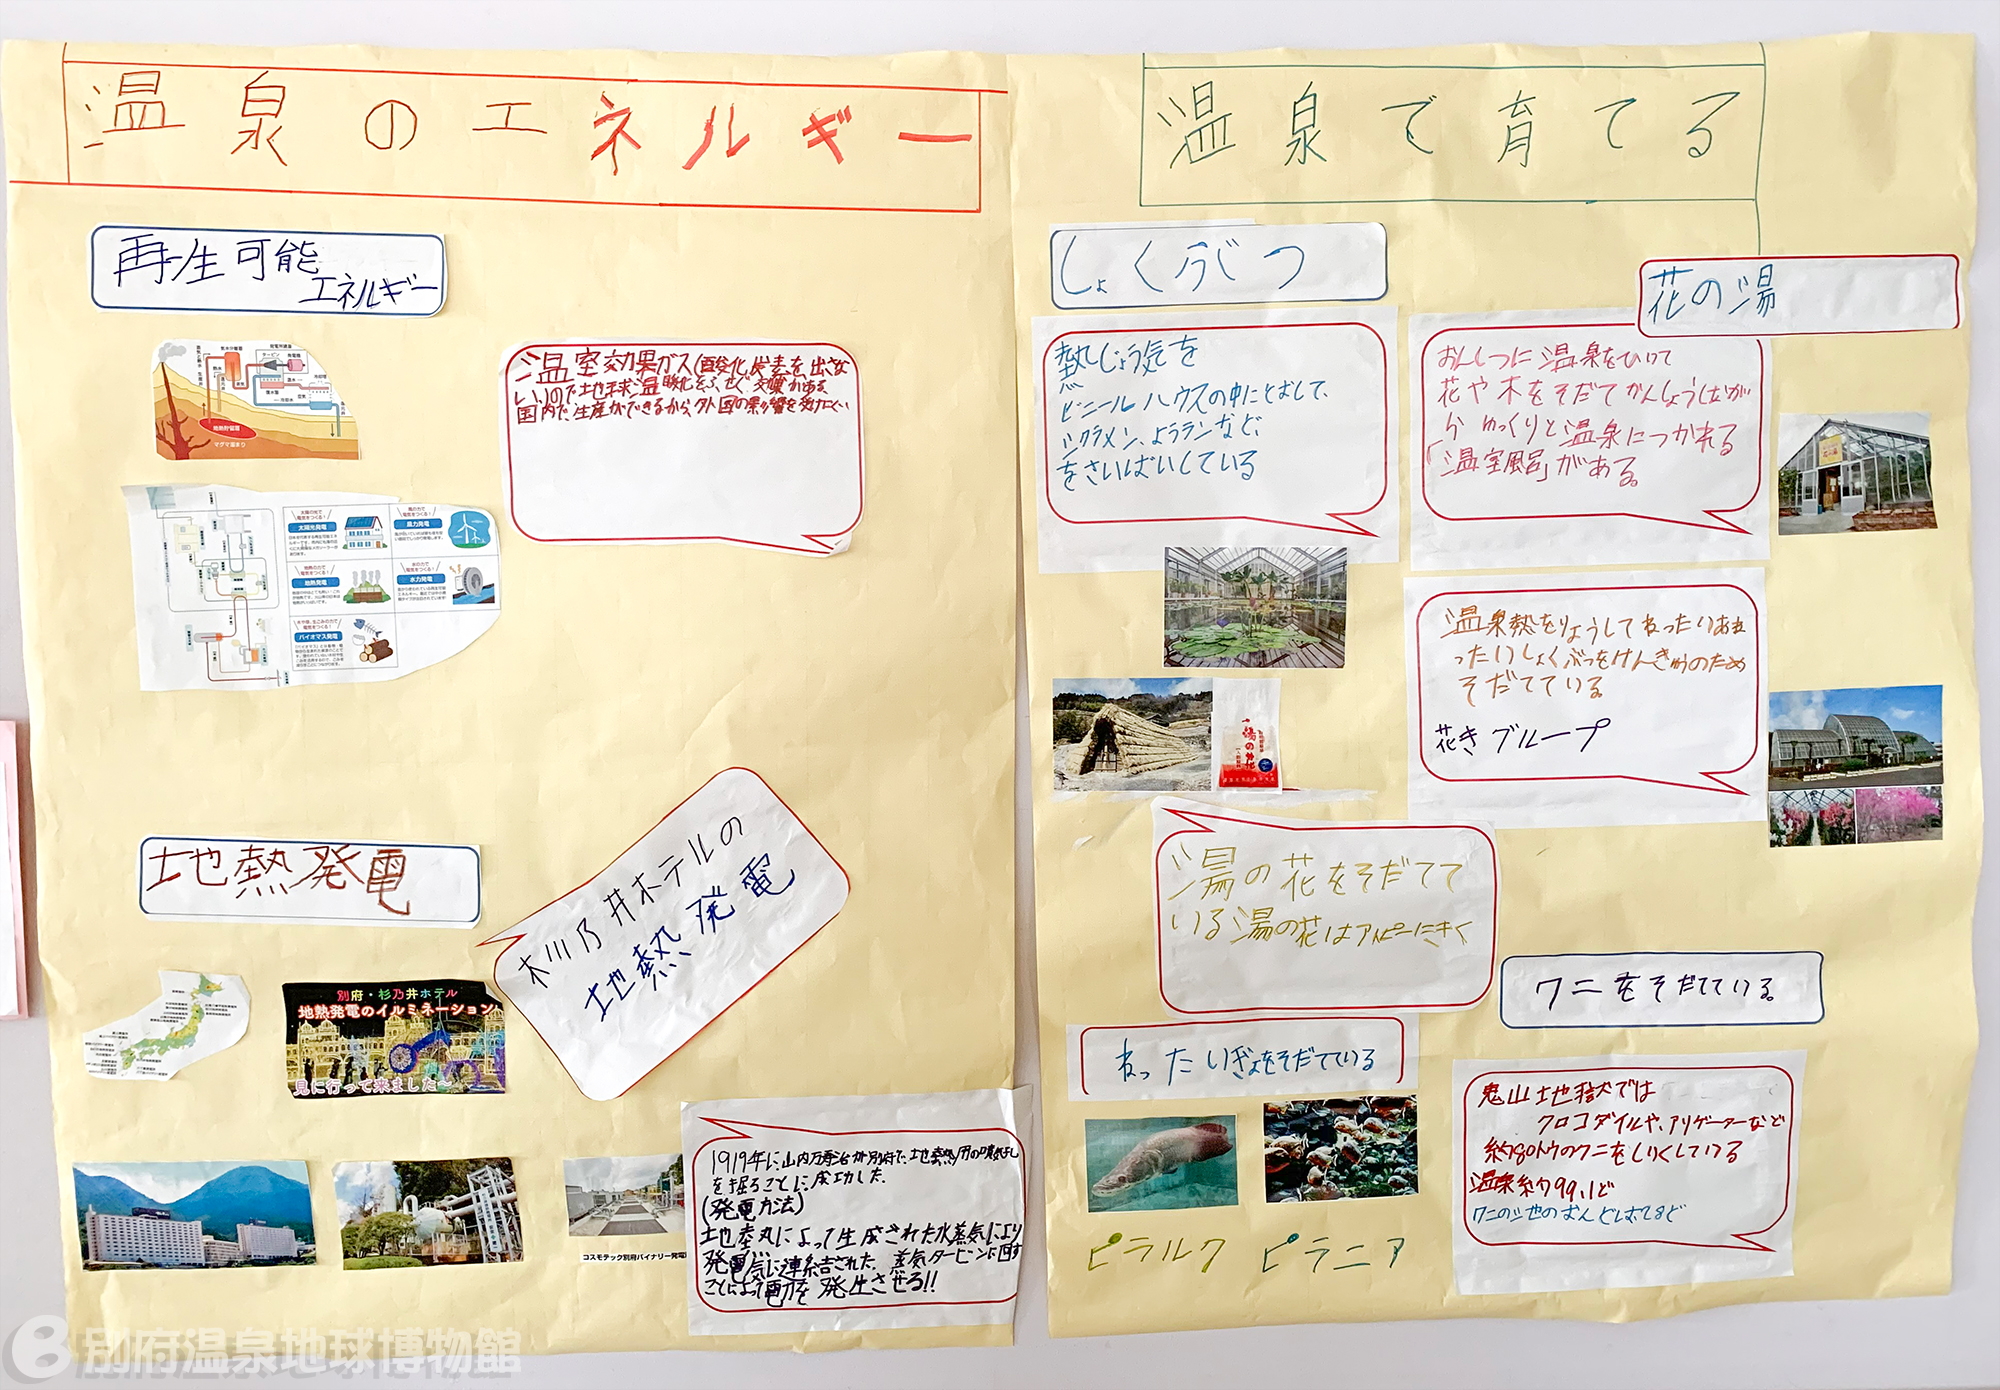 温泉のエネルギー
再生可能
エネルギー
温室効果ガス(酸化炭素を出さな
い)ので地球温暖化をふせぐ効果がある
国内で生産ができるから、外国の影響を受けにくい
地熱貯留層
マグマ溜まり
太陽光発電
風力発電
地熱発電
水力発電
バイオマス発電
地熱発電
杉乃井ホテルの
地熱発電
別府・杉乃井ホテル
地熱発電のイルミネーション
見に行って来ました〜
コスモテック別府バイナリー発電
1919年に、山内万寿治が別府で、地熱用の噴気孔
を掘ることに成功した。
(発電方法)
地熱によって生成された水蒸気により
発電気に連結された、蒸気タービンに回す
ことによって電力を発生させる!!
温泉で育てる
しょくぶつ
熱じょう気を
ビニールハウスの中にとおして、
シクラメン、ようランなど、
をさいばいしている
花の湯
おんしつに温泉をひいて
花や木をそだてかんしょうしなが
らゆっくりと温泉につかれる
「温室風呂」がある。
温泉熱をりようしてねったいあね
ったいしょくぶつをけんきゅうのため
そだてている
花きグループ
湯の花
湯の花をそだてて
いる湯の花はアトピーにきく
ワニをそだてている。
ねったいぎょをそだてている
ピラルク
ピラニア
鬼山地獄では
クロコダイルや、アリゲーターなど
約80トウのワニをしいくしている
温泉約99,1ど
別府温泉地球博物館